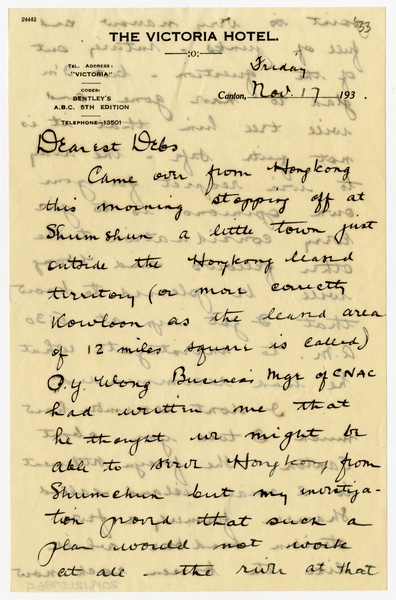 24462
'33
THE VICTORIA HOTEL.
TEL. ADDRESS:
"VICTORIA"
CODES:
BENTLEY'S
A.B.C. 5TH EDITION
TELEPHONE—13501
Friday
Canton, Nov. 17 193
Dearest Debs
Came over from Hongkong
this morning stopping off at
Shumshun a little town just
outside the Hongkong leased
territory (or more correctly
Kowloon as the leased area
of 12 miles square is called)
P.Y. Wong Business Mgr of CNAC
had written me that
he thought we might be
able to serve Hongkong from
Shumchun but my investiga-
tion proved that such a
plan would not work
at all – the river at that